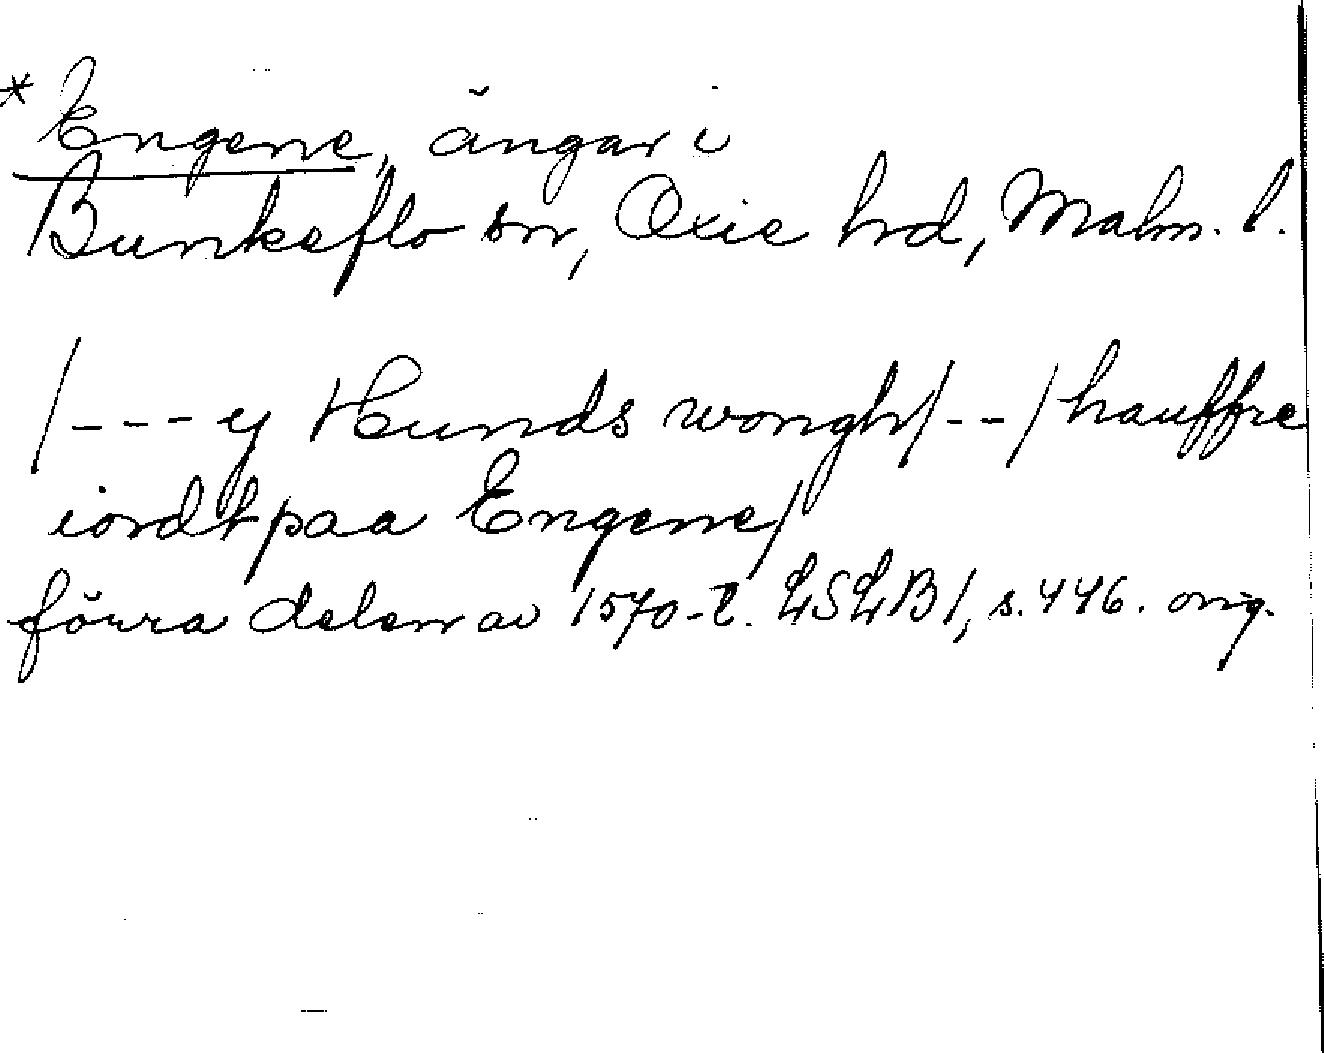 * Engene, ängar i
Bunkeflo sn, Oxie hrd, Malm. l.
/---y Hunds wongh/--/hauffre
iordt paa Engene/
förra delen av 1570-t. LSLB 1, s. 446. orig.